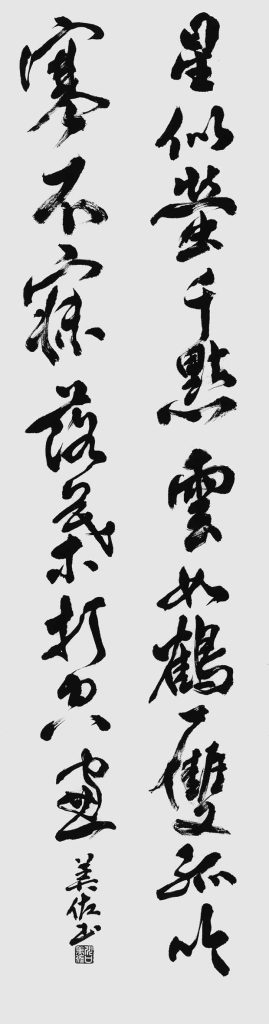 星似螢千點雲如鶴一雙孤吟
寒不寐落葉打空窗
美佐書